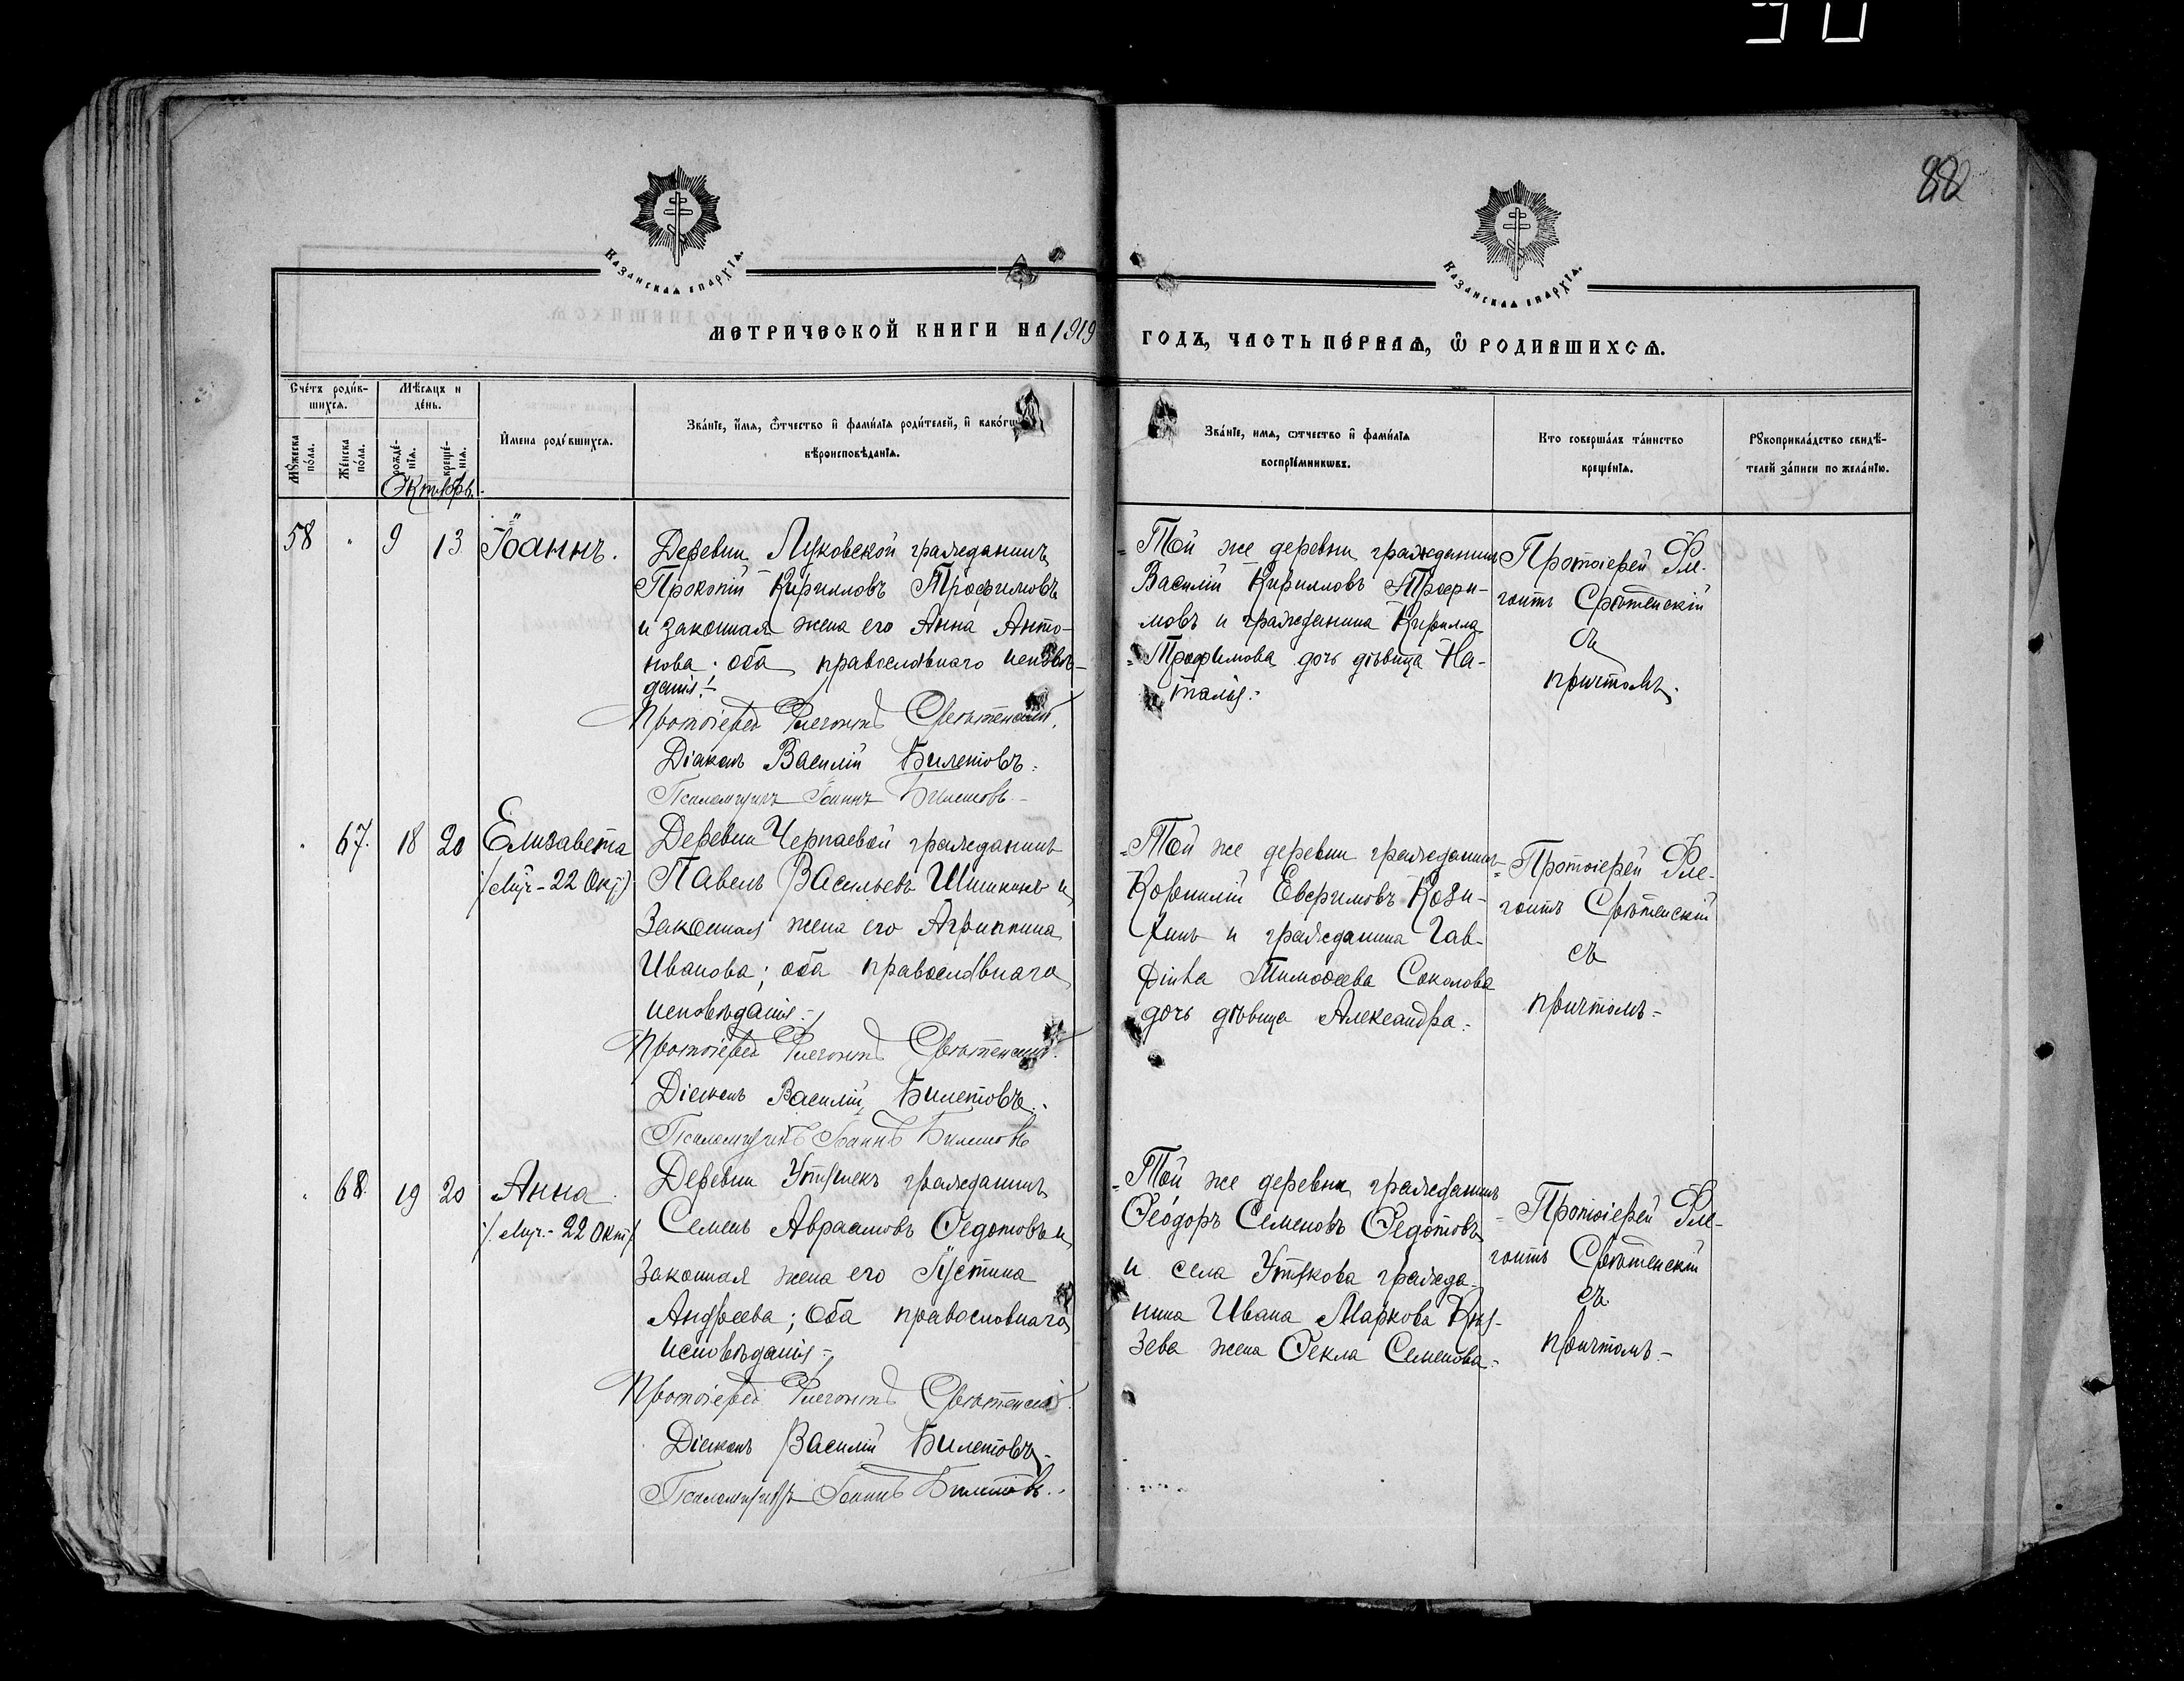 90
882
Казанская епархїя.
Казанская епархїя.
МЕТРИЧЕСКОЙ КНИГИ НА 1919
ГОДЪ, ЧАСТЬ ПЕ́РВАЯ, Ѿ РОДИВШИХСЯ.
Сче́тъ роди́в-
шихся.
Мѣ́сяцъ и
де́нь.
Мꙋ́жеска
по́ла.
Же́нска
по́ла.
рожде́-
нїя.
креще́-
нїя.
И҆мена роди́вшихся.
Зва́нїе, и҆́мя, ѻ҆́тчество и҆ фами́лїя роди́телей, и҆ како́гѡ
вѣроисповѣ́данїя.
Зва́нїе, имя, ѻтчество и҆ фами́лїя
воспрїе́мникѡвъ.
Кто соверша́лъ та́инство
креще́нїя.
Рꙋкоприкла́дство свидѣ́-
телей за́писи по жела́нїю.
Октябрь.
58 " 9 13 Іоаннъ.
Деревни Луковской гражданинъ
Прокопій Кирилловъ Трофимовъ
и законная жена его Анна Анто-
нова; оба православнаго исповѣ-
данія.-
Протоіерей Флегонтъ Срѣтенскій.
Діаконъ Василій Билетовъ.
Псаломщикъ Іоаннъ Билетовъ.-
Той же деревни гражданинъ
Василій Кирилловъ Трофи-
мовъ и гражданина Кирилла
Трофимова дочь дѣвица На-
талія.-
Протоіерей Фле-
гонтъ Срѣтенскій
съ
причтомъ.
" 67. 18 20 Елизавета
/Муч.-22 Окт/
Деревни гражданинъ
Павелъ Васильевъ Шишкинъ и
Законная жена его Агриппина
Иванова; оба православнаго
исповѣданія.-
Протоіерей Флегонтъ Срѣтенскій.
Діаконъ Василій Билетовъ.
Псаломщикъ Іоаннъ Билетовъ
Той же деревни гражданинъ
Корнилій Евфимовъ
и гражданина Гав-
Тимоѳеева Соколова
дочь дѣвица Александра.
Протоіерей Фле-
гонтъ Срѣтенскій
съ
причтомъ.-
" 68. 19 20 Анна.
/.Муч.-22 Окт/
Деревни гражданинъ
Семенъ Авраамовъ Ѳедотовъ и
Законная жена его Іустина
Андреева; оба православнаго
исповѣданія.-
Протоіерей Флегонтъ Срѣтенскій.
Діаконъ Василій Билетовъ.-
Псаломщикъ Іоаннъ Билетовъ.
Той же деревни гражданинъ
Ѳеодоръ Семеновъ Ѳедотовъ
и села Утякова гражда-
нина Ивана Маркова Кня-
зева жена Ѳекла Семенова.-
Протоіерей Фле-
гонтъ Срѣтенскій
съ
причтомъ.-